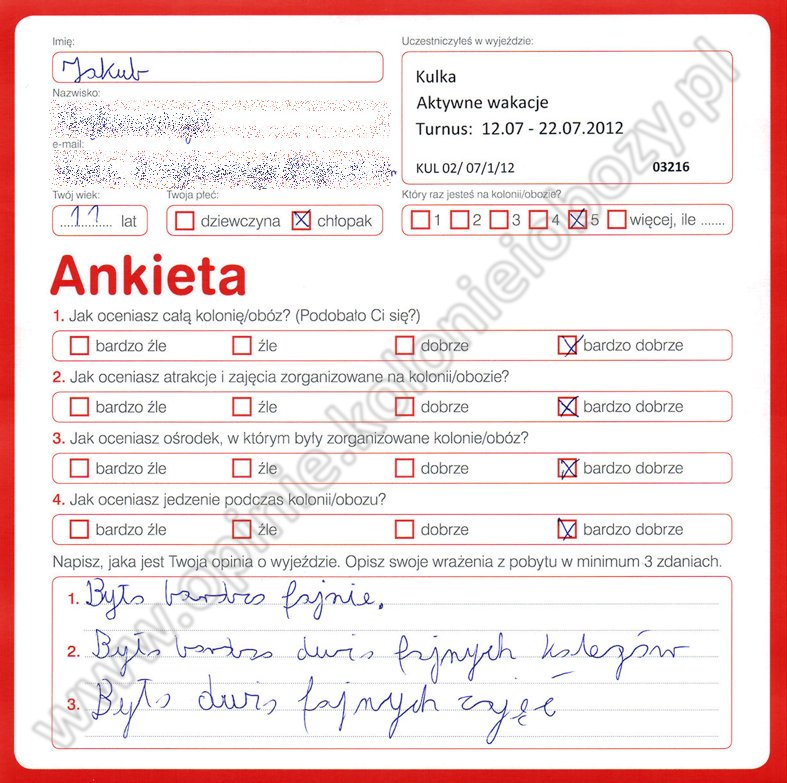 Imię:
Jakub
Nazwisko:
e-mail:
Twój wiek:
11 lat
Twoja płeć:
dziewczyna chłopak
Uczestniczyłeś w wyjeździe:
Kulka
Aktywne wakacje
Turnus: 12.07 - 22.07.2012
KUL 02/ 07/1/12 03216
Który raz jesteś na kolonii/obozie?
1 2 3 4 5 więcej, ile .......
Ankieta
1. Jak oceniasz całą kolonię/obóz? (Podobało Ci się?)
bardzo źle źle dobrze bardzo dobrze
2. Jak oceniasz atrakcje i zajęcia zorganizowane na kolonii/obozie?
bardzo źle źle dobrze bardzo dobrze
3. Jak oceniasz ośrodek, w którym były zorganizowane kolonie/obóz?
bardzo źle źle dobrze bardzo dobrze
4. Jak oceniasz jedzenie podczas kolonii/obozu?
bardzo źle źle dobrze bardzo dobrze
Napisz, jaka jest Twoja opinia o wyjeździe. Opisz swoje wrażenia z pobytu w minimum 3 zdaniach.
1. Było bardzo fajnie.
2. Było bardzo dużo fajnych kolegów
3. Było dużo fajnych zajęć
www.opinie.kolonieiobozy.pl